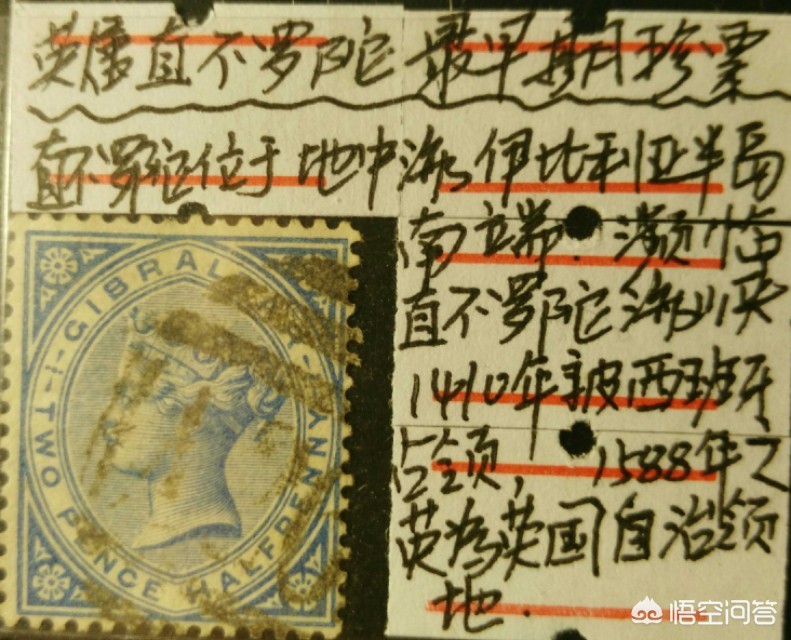 英属直不罗陀最早期珍票
直不罗陀位于地中海伊比利亚半岛
南立端.濒临
直不罗陀海峡
1410年被西班牙
占领,1588年之
英为英国自治领
地.
GIBRALTAR
TWO PENCE HALFPENNY
悟空问答